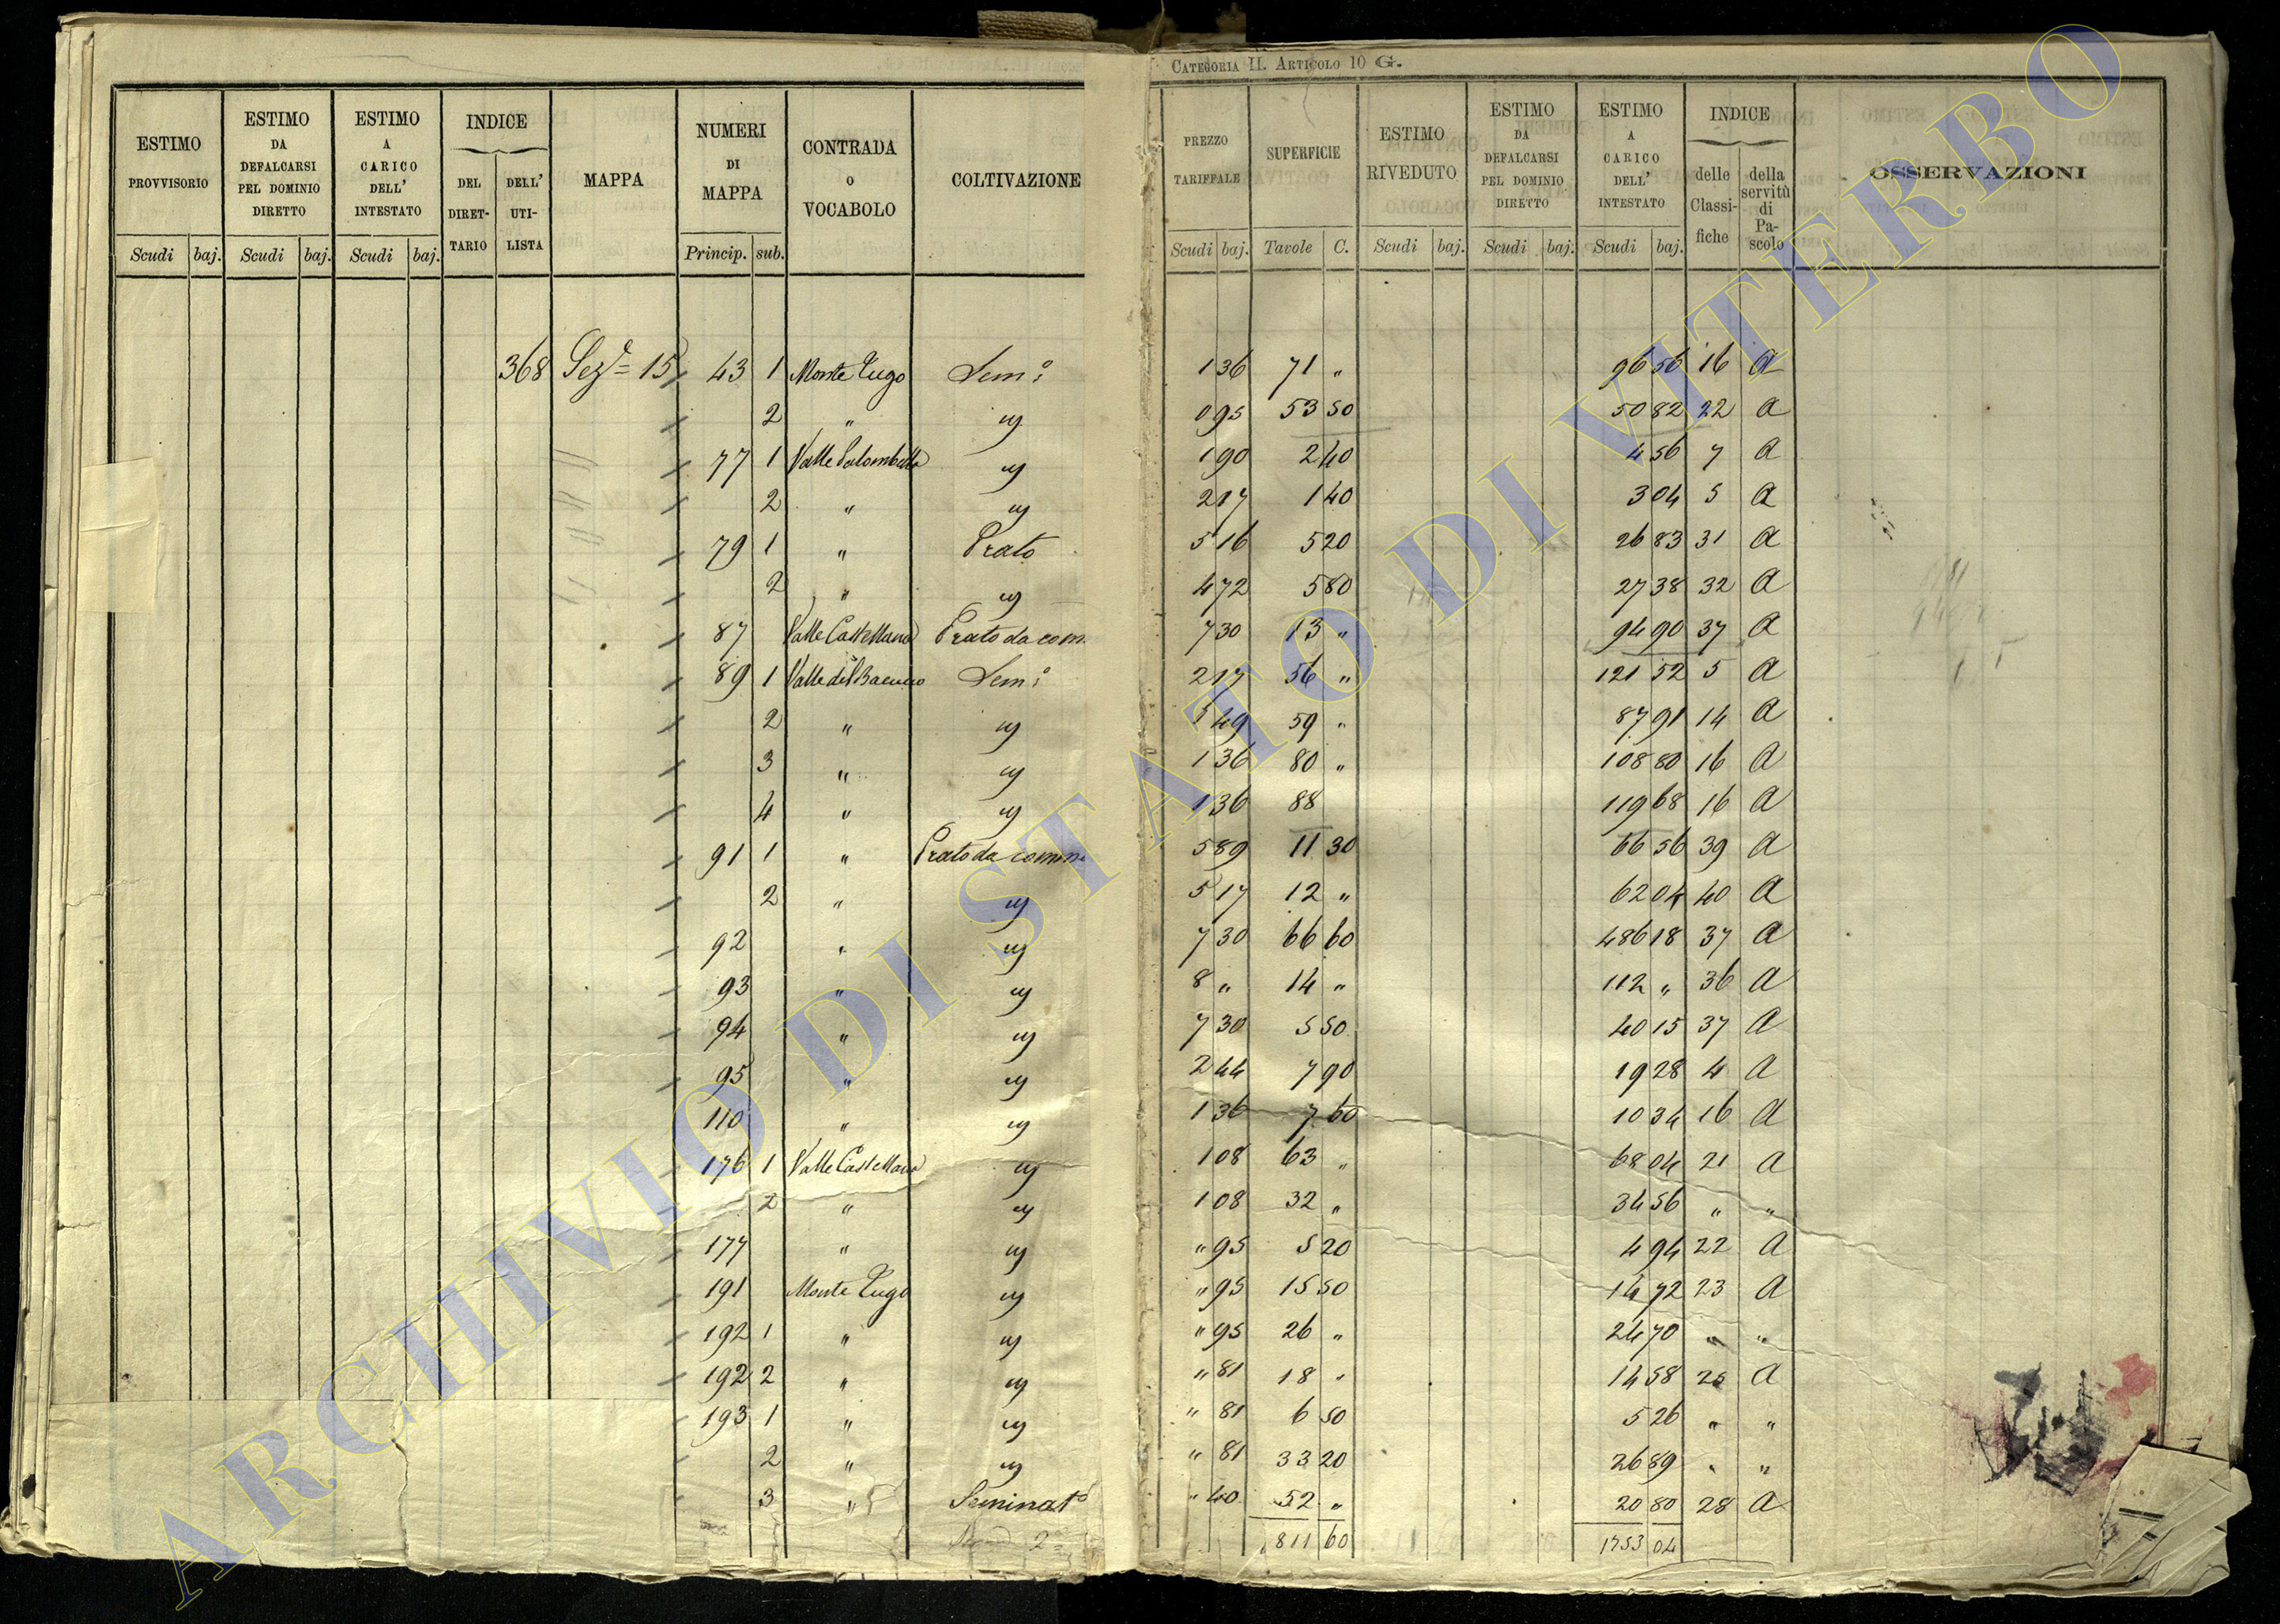 CATEGORIA II. ARTICOLO 10 G.
ESTIMO PROVVISORIO | ESTIMO DA DEFALCARSI PEL DOMINIO DIRETTO | ESTIMO A CARICO DELL' INTESTATO | INDICE DEL DIRETTARIO | DELL' UTILISTA | MAPPA | NUMERI DI MAPPA | CONTRADA o VOCABOLO | COLTIVAZIONE | PREZZO TARIFFALE | SUPERFICIE | ESTIMO RIVEDUTO | ESTIMO DA DEFALCARSI PEL DOMINIO DIRETTO | ESTIMO A CARICO DELL' INTESTATO | INDICE delle Classifiche | della servitù di Pascolo | OSSERVAZIONI
Scudi baj. Scudi baj. Scudi baj. Princip. sub. Scudi baj. Tavole C. Scudi baj. Scudi baj. Scudi baj.
368 Sez.e = 15 43 1 Monte Lugo Sem.o 1 36 71 " 96 56 16 a
2 " " 0 95 53 50 50 82 22 a
77 1 Valle Palombella " 1 90 2 40 4 56 7 a
2 " " 2 17 1 40 3 04 5 a
79 1 " Prato 5 16 5 20 26 83 31 a
2 " " 4 72 5 80 27 38 32 a
87 Valle Castellana Prato da com. 7 30 13 " 94 90 37 a
89 1 Valle del Sem.o 2 17 56 " 121 52 5 a
2 " " 1 49 59 " 87 91 14 a
3 " " 1 36 80 " 108 80 16 a
4 " " 1 36 88 119 68 16 a
91 1 " Prato da comm 5 89 11 30 66 56 39 a
2 " " 5 17 12 " 62 04 40 a
92 " " 7 30 66 60 486 18 37 a
93 " " 8 " 14 " 112 " 36 a
94 " " 7 30 5 50 40 15 37 a
95 " " 2 44 7 90 19 28 4 a
110 " " 1 36 7 60 10 34 16 a
176 1 Valle Castellana " 1 08 63 " 68 04 21 a
2 " " 1 08 32 " 34 56 " "
177 " " " 95 5 20 4 94 22 a
191 Monte Lugo " " 95 15 50 14 72 23 a
192 1 " " " 95 26 " 24 70 " "
192 2 " " " 81 18 " 14 58 25 a
193 1 " " " 81 6 50 5 26 " "
2 " " " 81 33 20 26 89 " "
3 " Seminato " 40 52 " 20 80 28 a
811 60 1753 04
ARCHIVIO DI STATO DI VITERBO